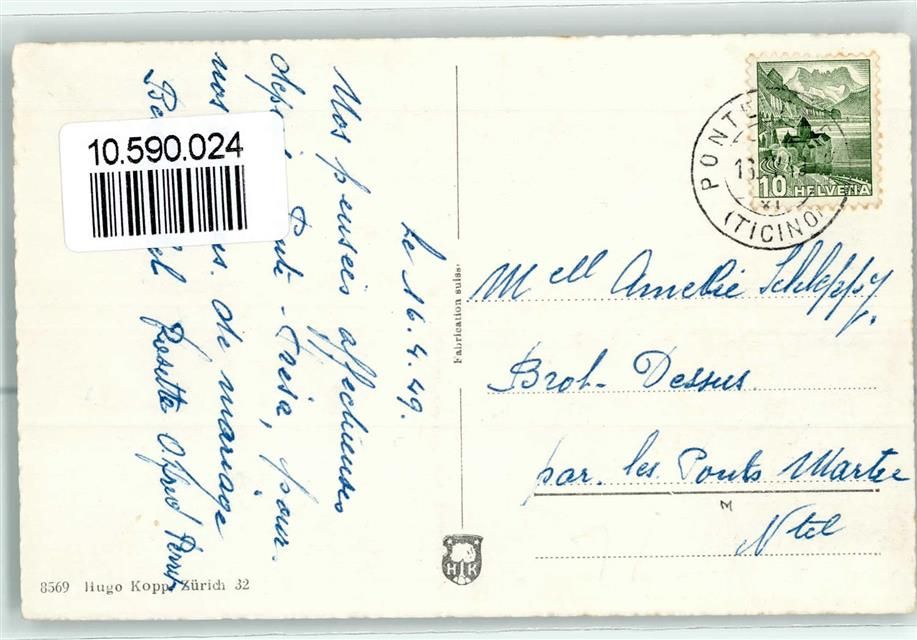 10.590.024
Le 16.4.49.
Nos pensées affectueuses
Tresa, pour
nos de mariage
Rosette
PONTE
(TICINO)
10 HELVETIA
Mell Amelie Schleppy.
Brot-Dessus
par. les Ponts Martel
Ntel
M
Fabrication suisse
HK
8569 Hugo Kopp, Zürich 32